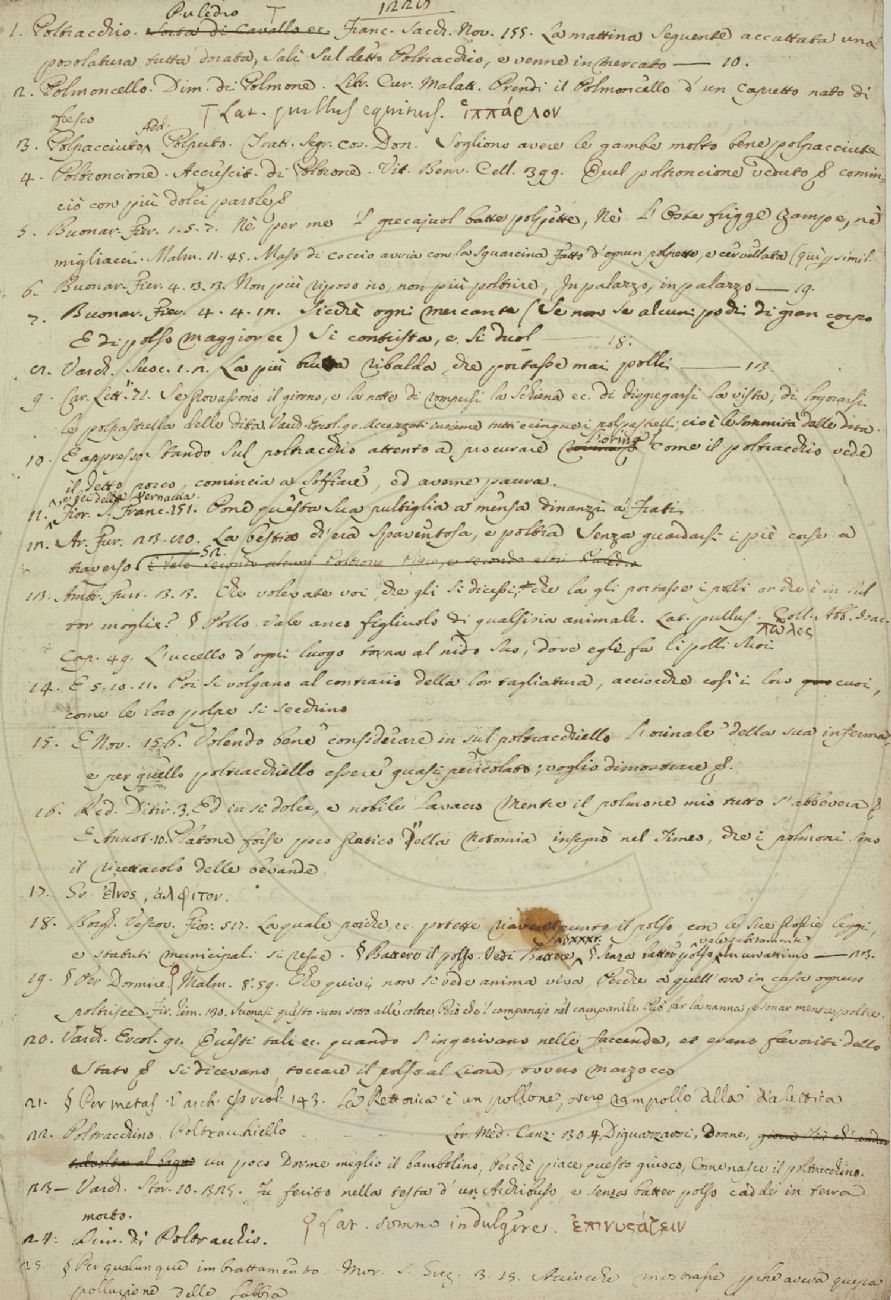 1229
Puledro T
1. Poltracchio. Sorta di Cavallo ec. Franc. Sacch. Nov. 155. La mattina seguente accattata una
posolatura tutta dorata, salì sul detto Poltracchio, e venne in mercato — 10.
2. Polmoncello. Dim. di Polmone. Libr. Cur. Malatt. Prendi il Polmoncello d'un capretto nato di
fresco T Lat. pullus equinus. ἱππάριον
3. Polpacciuto Add. Polputo. Tratt. segr. cos. Don. Sogliono avere le gambe molto bene polpacciute
4. Poltroncione. Accrescit. di Poltrone. Vit. Benv. Cell. 399. Quel poltroncione veduto comin-
ciò con più dolci parole
5. Buonar. Fier. 1. 5. 7. Nè per me 'l grecajuol batte polpette, Nè L'Oste frigge zampe, nè
migliacci. Malm. 11. 45. Maso di coccio avvia con la squarcina Fatto d'ognun polpette, e cervellata (qui simil.
6. Buonar. Fier. 4. 3. 3. Non più riposo no, non più poltrire, In palazzo, in palazzo — 19.
7. Buonar. Fier. 4. 4. 12. Siedi ogni mercante (Se non se alcun pochi di gran corpo
E di polso maggior ec) Si contrista, e si duol — 18.
8. Varch. Suoc. 1. 2. La più brutta ribalda, che portasse mai polli — 13.
9. Car. Lett. 71. Se provassono il giorno, e la notte di rompersi la schiena ec. di disgregarsi la vista, di logorarsi
le polpastrella delle dita. Varch. Ercol. 90. Accozzati insieme tutti e cinque i polpastrelli, cioè le sommità delle dita.
10. E appresso. Stando sul poltracchio attento a procurare l'orina come il poltracchio vede
il detto porco, comincia a soffiare, ed averne paura.
11. Fior. S. Franc. 151. Pone questa sua pultiglia a mensa dinanzi a' Frati
12. Ar. Fur. 23. 90. La bestia ch'era spaventosa, e poltra Senza guardarsi i piè corse a
traverso
13. Ambr. Furt. 3. 3. Che volevate voi, che gli si dicessi, che la gli portasse i polli or che è in sul
tor moglie? § Pollo vale anco figliuolo di qualsisia animale. Lat. pullus. Coll. Abb. Isac.
Cap. 49. L'uccello d'ogni luogo torna al nido suo, dove egli fa li polli suoi
14. E 5. 10. 11. Poi si volgano al contrario della lor tagliatura, acciocchè così i loro cuoi,
come le loro polpe si secchino
15. E Nov. 156. Volendo bene considerare in sul poltracchiello L'orinale della sua inferma,
e per quello poltracchiello essere quasi pericolato; voglio dimostrare
16. Red. Ditir. 3. Ed in sì dolce, e nobile lavacro Mentre il polmone mio tutto s'abbevera
E Annot. 10. Platone forse poco pratico della Notomia insegnò nel Timeo, che i polmoni sono
il ricettacolo delle bevande.
17. Gr. ἔτνος, ἄλφιτον.
18. Borgh. Vescov. Fior. 517. La quale poichè ec. potette riavere punto il polso, con le sue stesse leggi,
e statuti municipali si resse. § Battere il polso. Vedi Battere § Senza batter polso vale subitamente In un attimo — 23.
19. § Per Dormire Malm. 8. 59. Che quivi non si vede anima viva, Perchè a quell'ora in casa ognuno
poltrisce. Fir. Rim. 130. Suonasi questo suon sotto alle coltre, Però che 'l campanajo nel campanile Può far la nanna, e sonar mentre poltre.
20. Varch. Ercol. 91. Questi tali ec. quando s'ingerivano nelle faccende, et erano favoriti dello
Stato si dicevano, toccare il polso al Lione, ovvero Marzocco
21. § Per metaf. Varch. Ercol. 143. La Rettorica è un pollone, ovvero rampollo della Dialettica
22. Poltracchino. Poltracchiello Lor. Med. Canz. 130. 4. Diguazzarsi, Donne,
un poco Dorme meglio il bambolino, Perchè piace questo giuoco, Come nasce il poltracchino.
23 — Varch. Stor. 10. 325. Fu ferito nella testa d'un Archibuso, e senza batter polso cadde in terra
morto.
24. Dim. di Poltracchio. § Lat. somno indulgere. ἐπινυστάζειν
25. § Per qualunque imbrattamento. Mor. S. Greg. 3. 15. Acciocchè mostrasse, che aveva questa
polluzione delle labbra